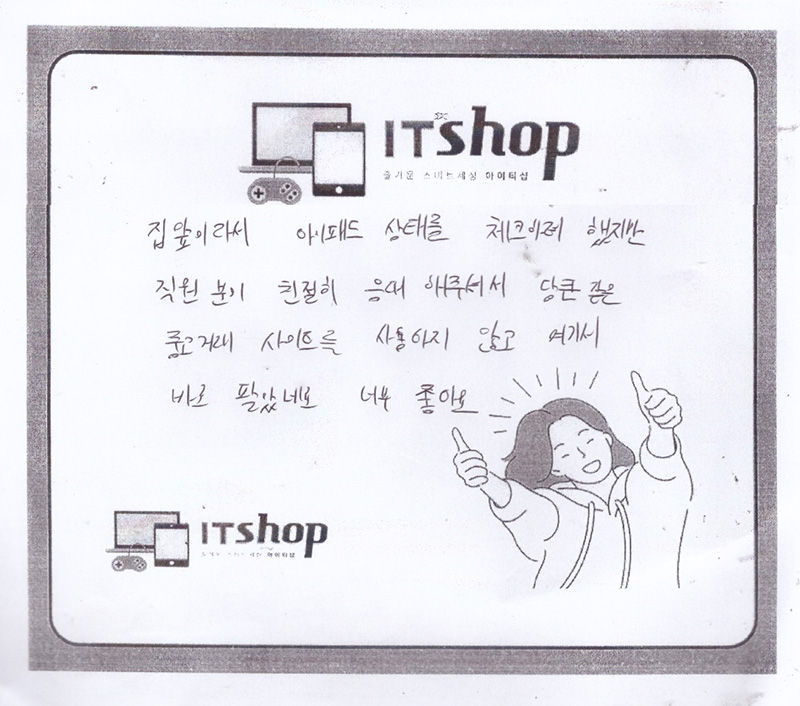 ITshop
즐거운 스마트세상 아이티샵
집앞이라서 아이패드 상태를 체크하려 했지만
직원 분이 친절히 응대 해주셔서 당근 같은
중고거래 사이트를 사용하지 않고 여기서
바로 팔았네요 너무 좋아요
ITshop
아이티샵